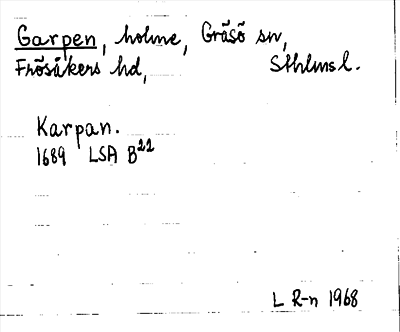 Garpen, holme, Gräsö sn,
Frösåkers hd, Sthlms l.
Karpan.
1689 LSA B22
L R-n 1968